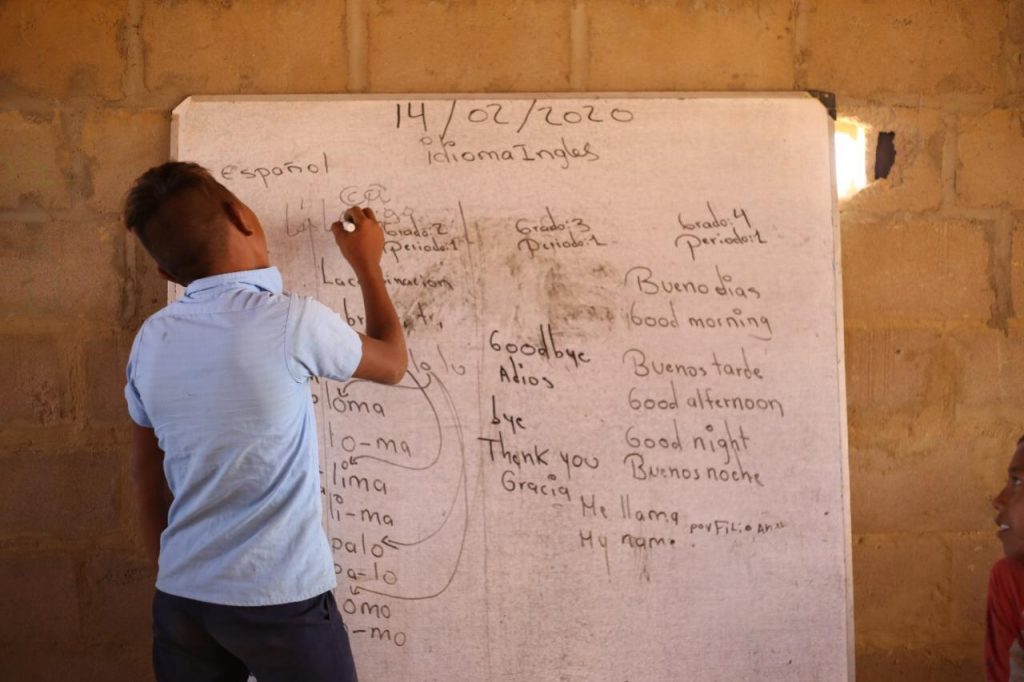 14/02/2020
idioma Ingles
Español
ca
Grado:2
Periodo:1
Grado:3
Periodo:1
Grado:4
Periodo:1
Goodbye
Adios
bye
Thank you
Gracia
Bueno dias
Good morning
Buenos tarde
Good alfernoon
Good night
Buenos noche
Me llama
My name
lo lu
loma
lo-ma
lima
li-ma
palo
pa-lo
omo
-mo